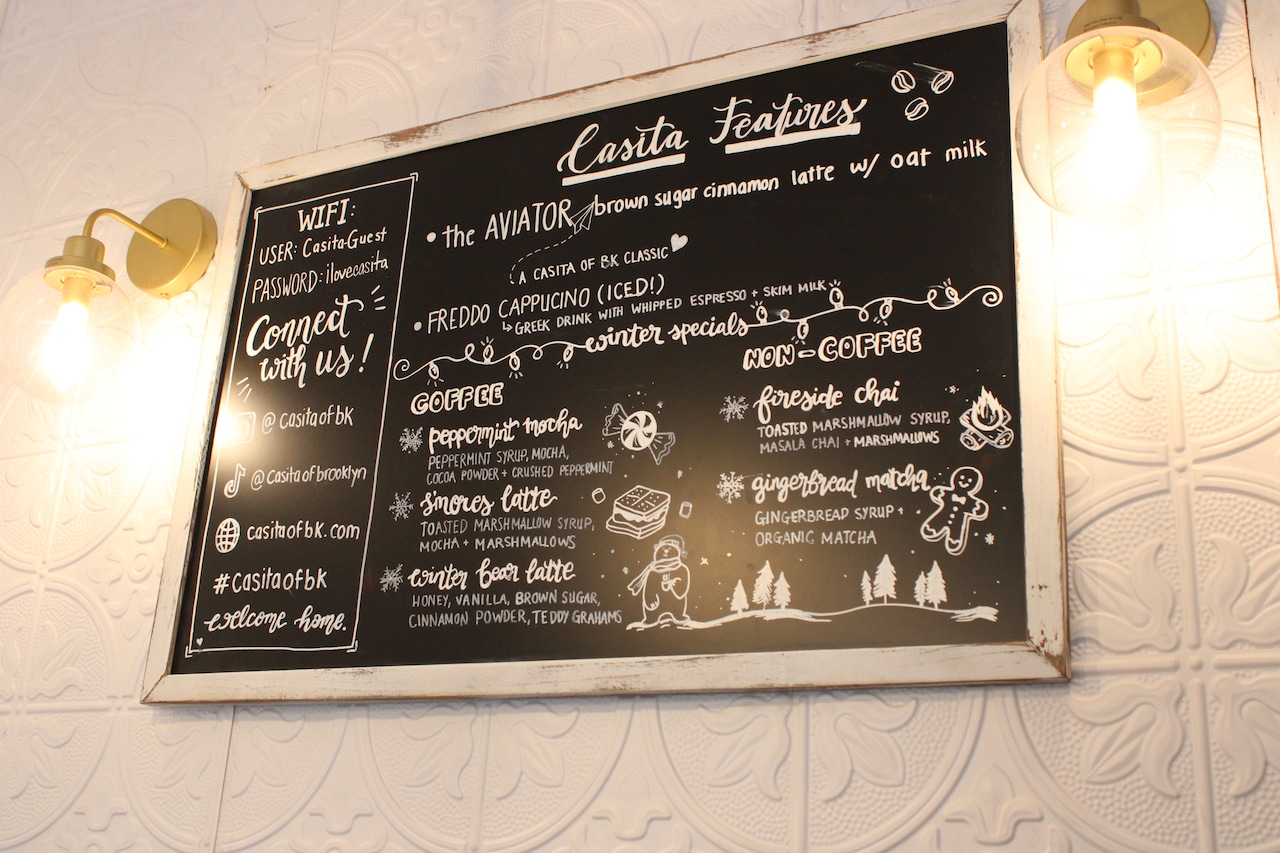 WIFI:
USER: Casita-Guest
PASSWORD: ilovecasita
Connect
with us!
@casitaofbk
@casitaofbrooklyn
casitaofbk.com
#casitaofbk
welcome home.
Casita Features
• the AVIATOR brown sugar cinnamon latte w/ oat milk
A CASITA OF BK CLASSIC
• FREDDO CAPPUCINO (ICED!)
↳ GREEK DRINK WITH WHIPPED ESPRESSO + SKIM MILK
winter specials
COFFEE
peppermint mocha
PEPPERMINT SYRUP, MOCHA,
COCOA POWDER + CRUSHED PEPPERMINT
s'mores latte
TOASTED MARSHMALLOW SYRUP,
MOCHA + MARSHMALLOWS
winter bear latte
HONEY, VANILLA, BROWN SUGAR,
CINNAMON POWDER, TEDDY GRAHAMS
NON-COFFEE
fireside chai
TOASTED MARSHMALLOW SYRUP,
MASALA CHAI + MARSHMALLOWS
gingerbread matcha
GINGERBREAD SYRUP +
ORGANIC MATCHA